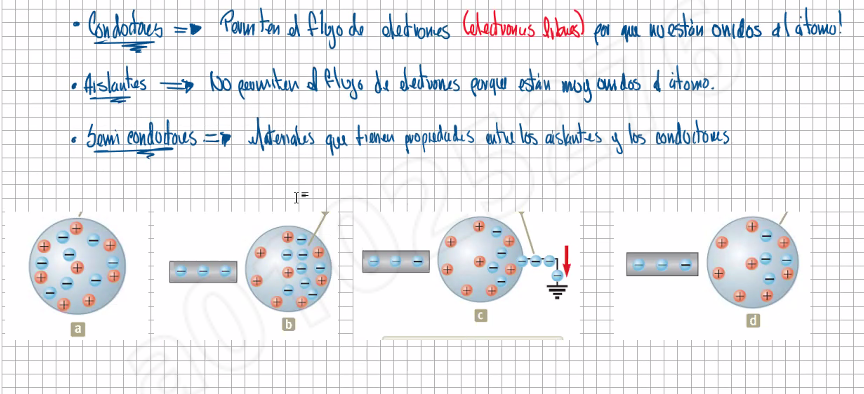 • Conductores => Permiten el flujo de electrones (electrones libres) por que no están unidos al átomo!
• Aislantes => No permiten el flujo de electrones porque están muy unidos al átomo.
• Semi conductores => Materiales que tienen propiedades entre los aislantes y los conductores
a
b
c
d